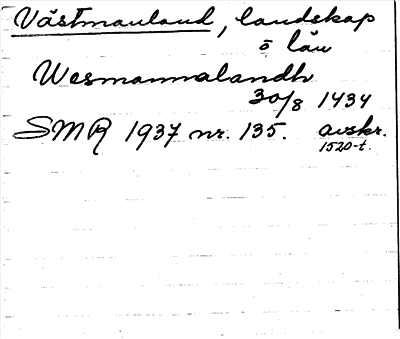 Västmanland, landskap
o län
Wesmannalandh
30/8 1434
SMR 1937 nr. 135. avskr.
1520-t.